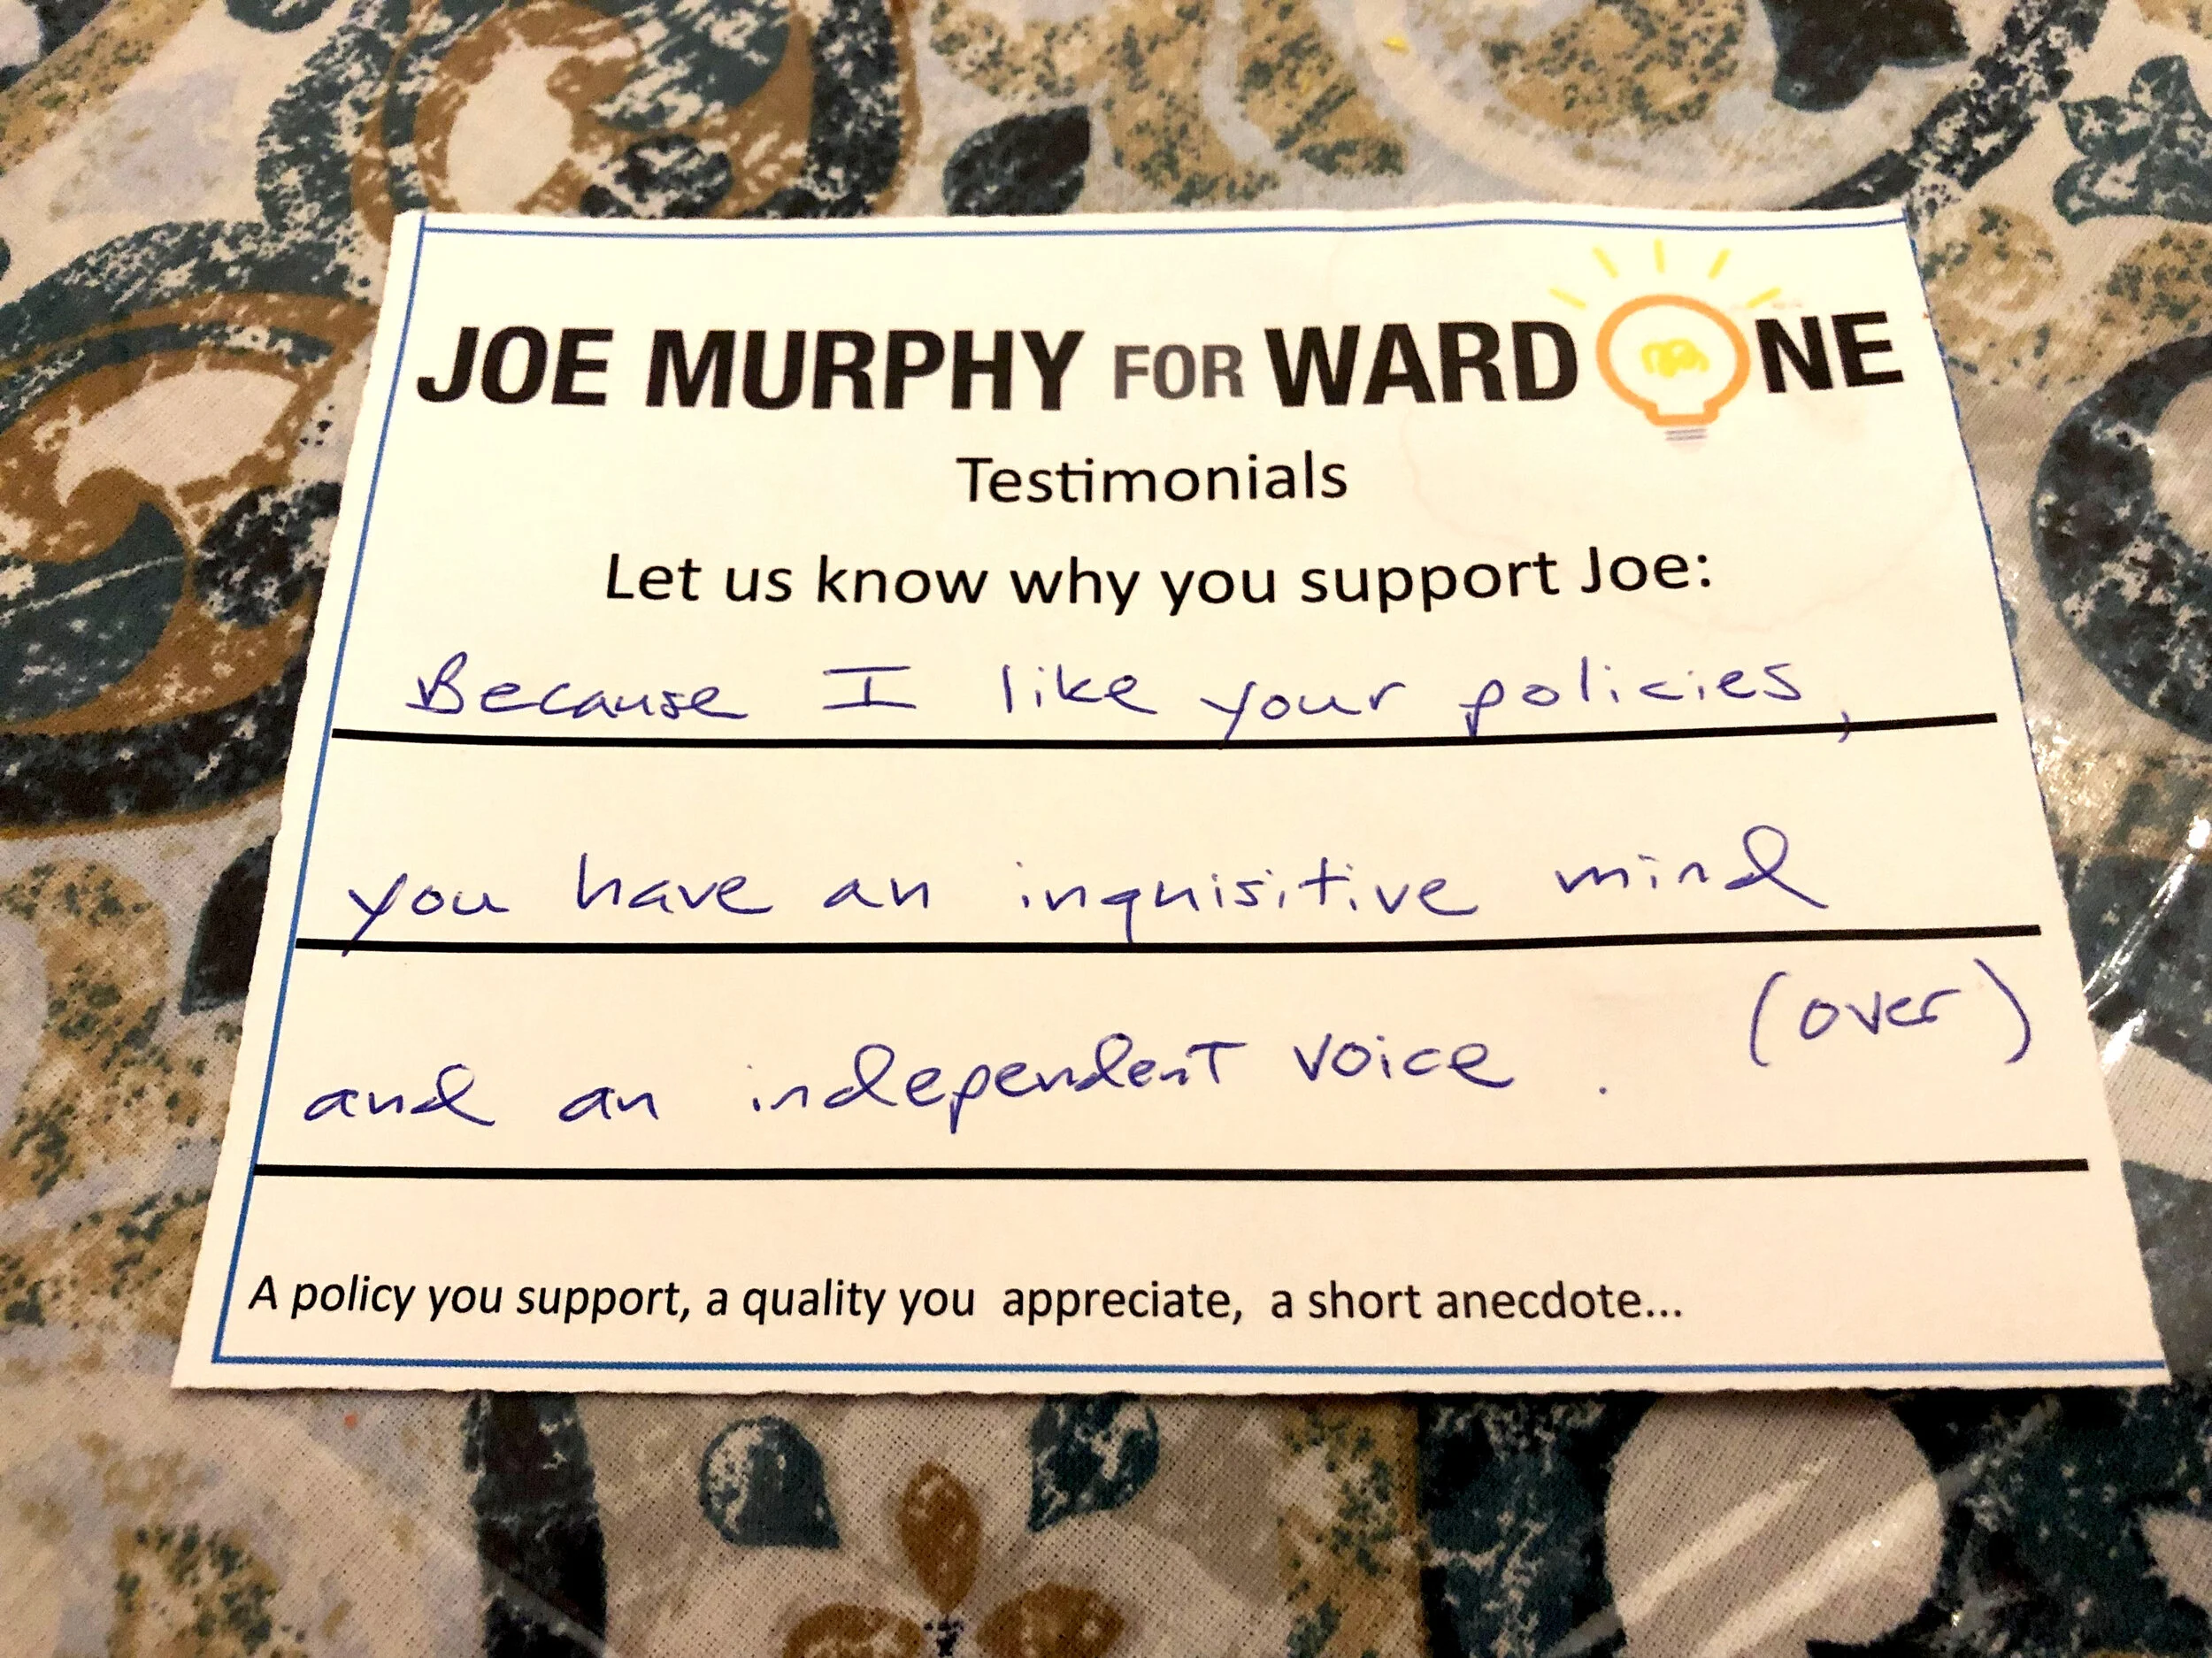 JOE MURPHY FOR WARD ONE
Testimonials
Let us know why you support Joe:
Because I like your policies,
you have an inquisitive mind
and an independent voice. (over)
A policy you support, a quality you appreciate, a short anecdote...